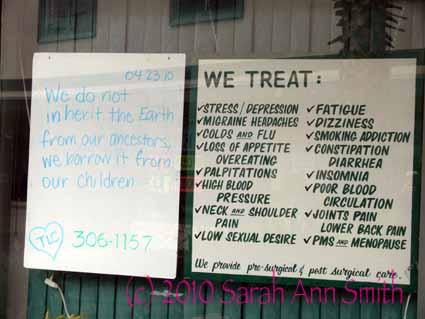 04.23.10
We do not
inherit the Earth
from our ancestors,
we borrow it from
our children
TLC 306-1157
WE TREAT:
✓STRESS/DEPRESSION
✓MIGRAINE HEADACHES
✓COLDS AND FLU
✓LOSS OF APPETITE
OVEREATING
✓PALPITATIONS
✓HIGH BLOOD
PRESSURE
✓NECK AND SHOULDER
PAIN
✓LOW SEXUAL DESIRE
✓FATIGUE
✓DIZZINESS
✓SMOKING ADDICTION
✓CONSTIPATION
DIARRHEA
✓INSOMNIA
✓POOR BLOOD
CIRCULATION
✓JOINTS PAIN
LOWER BACK PAIN
✓PMS AND MENOPAUSE
We provide pre-surgical & post surgical care.
(c) 2010 Sarah Ann Smith